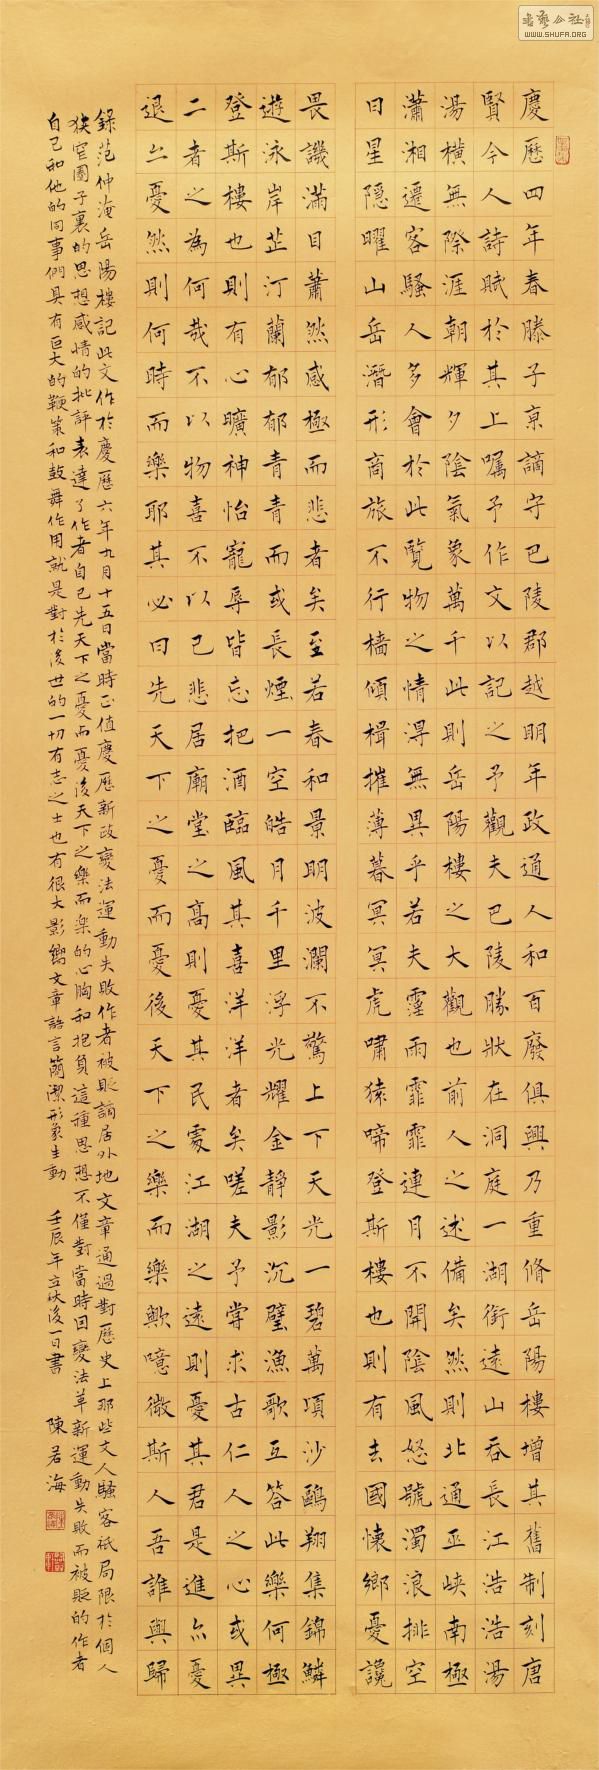 慶歷四年春滕子京謫守巴陵郡越明年政通人和百廢俱興乃重脩岳陽樓增其舊制刻唐
賢今人詩賦於其上囑予作文以記之予觀夫巴陵勝狀在洞庭一湖銜遠山吞長江浩浩湯
湯橫無際涯朝輝夕陰氣象萬千此則岳陽樓之大觀也前人之述備矣然則北通巫峽南極
瀟湘遷客騷人多會於此覽物之情得無異乎若夫霪雨霏霏連月不開陰風怒號濁浪排空
日星隱曜山岳潛形商旅不行檣傾楫摧薄暮冥冥虎嘯猿啼登斯樓也則有去國懷鄉憂讒
畏譏滿目蕭然感極而悲者矣至若春和景明波瀾不驚上下天光一碧萬頃沙鷗翔集錦鱗
遊泳岸芷汀蘭郁郁青青而或長煙一空皓月千里浮光耀金靜影沉璧漁歌互答此樂何極
登斯樓也則有心曠神怡寵辱皆忘把酒臨風其喜洋洋者矣嗟夫予嘗求古仁人之心或異
二者之為何哉不以物喜不以己悲居廟堂之高則憂其民處江湖之遠則憂其君是進亦憂
退亦憂然則何時而樂耶其必曰先天下之憂而憂後天下之樂而樂歟噫微斯人吾誰與歸
錄范仲淹岳陽樓記此文作於慶歷六年九月十五日當時正值慶歷新政變法運動失敗作者被貶謫居外地文章通過對歷史上那些文人騷客祇局限於個人
狹窄圈子裏的思想感情的批評表達了作者自己先天下之憂而憂後天下之樂而樂的心胸和抱負這種思想不僅對當時因變法革新運動失敗而被貶的作者
自己和他的同事們具有巨大的鞭策和鼓舞作用就是對於後世的一切有志之士也有很大影響文章語言簡潔形象生動 壬辰年立秋後一日書 陳若海
書藝公社
WWW.SHUFA.ORG